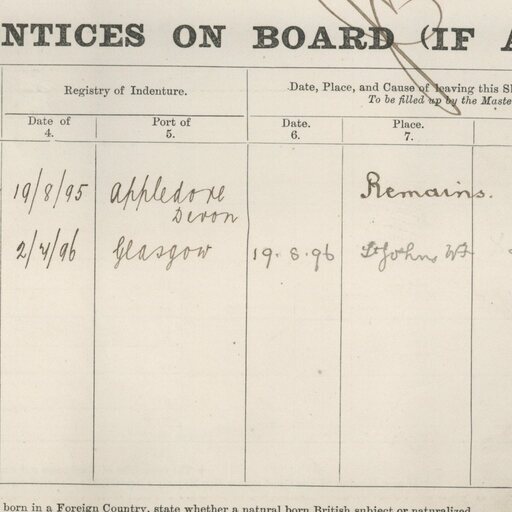 NTICES ON BOARD (IF A
Registry of Indenture.
Date, Place, and Cause of leaving this Sh
To be filled up by the Maste
Date of
4.
Port of
5.
Date.
6.
Place.
7.
19/8/95 Appledore Remains.
Devon
2/4/96 Glasgow 19.8.96 St Johns
born in a Foreign Country, state whether a natural born British subject or naturalized